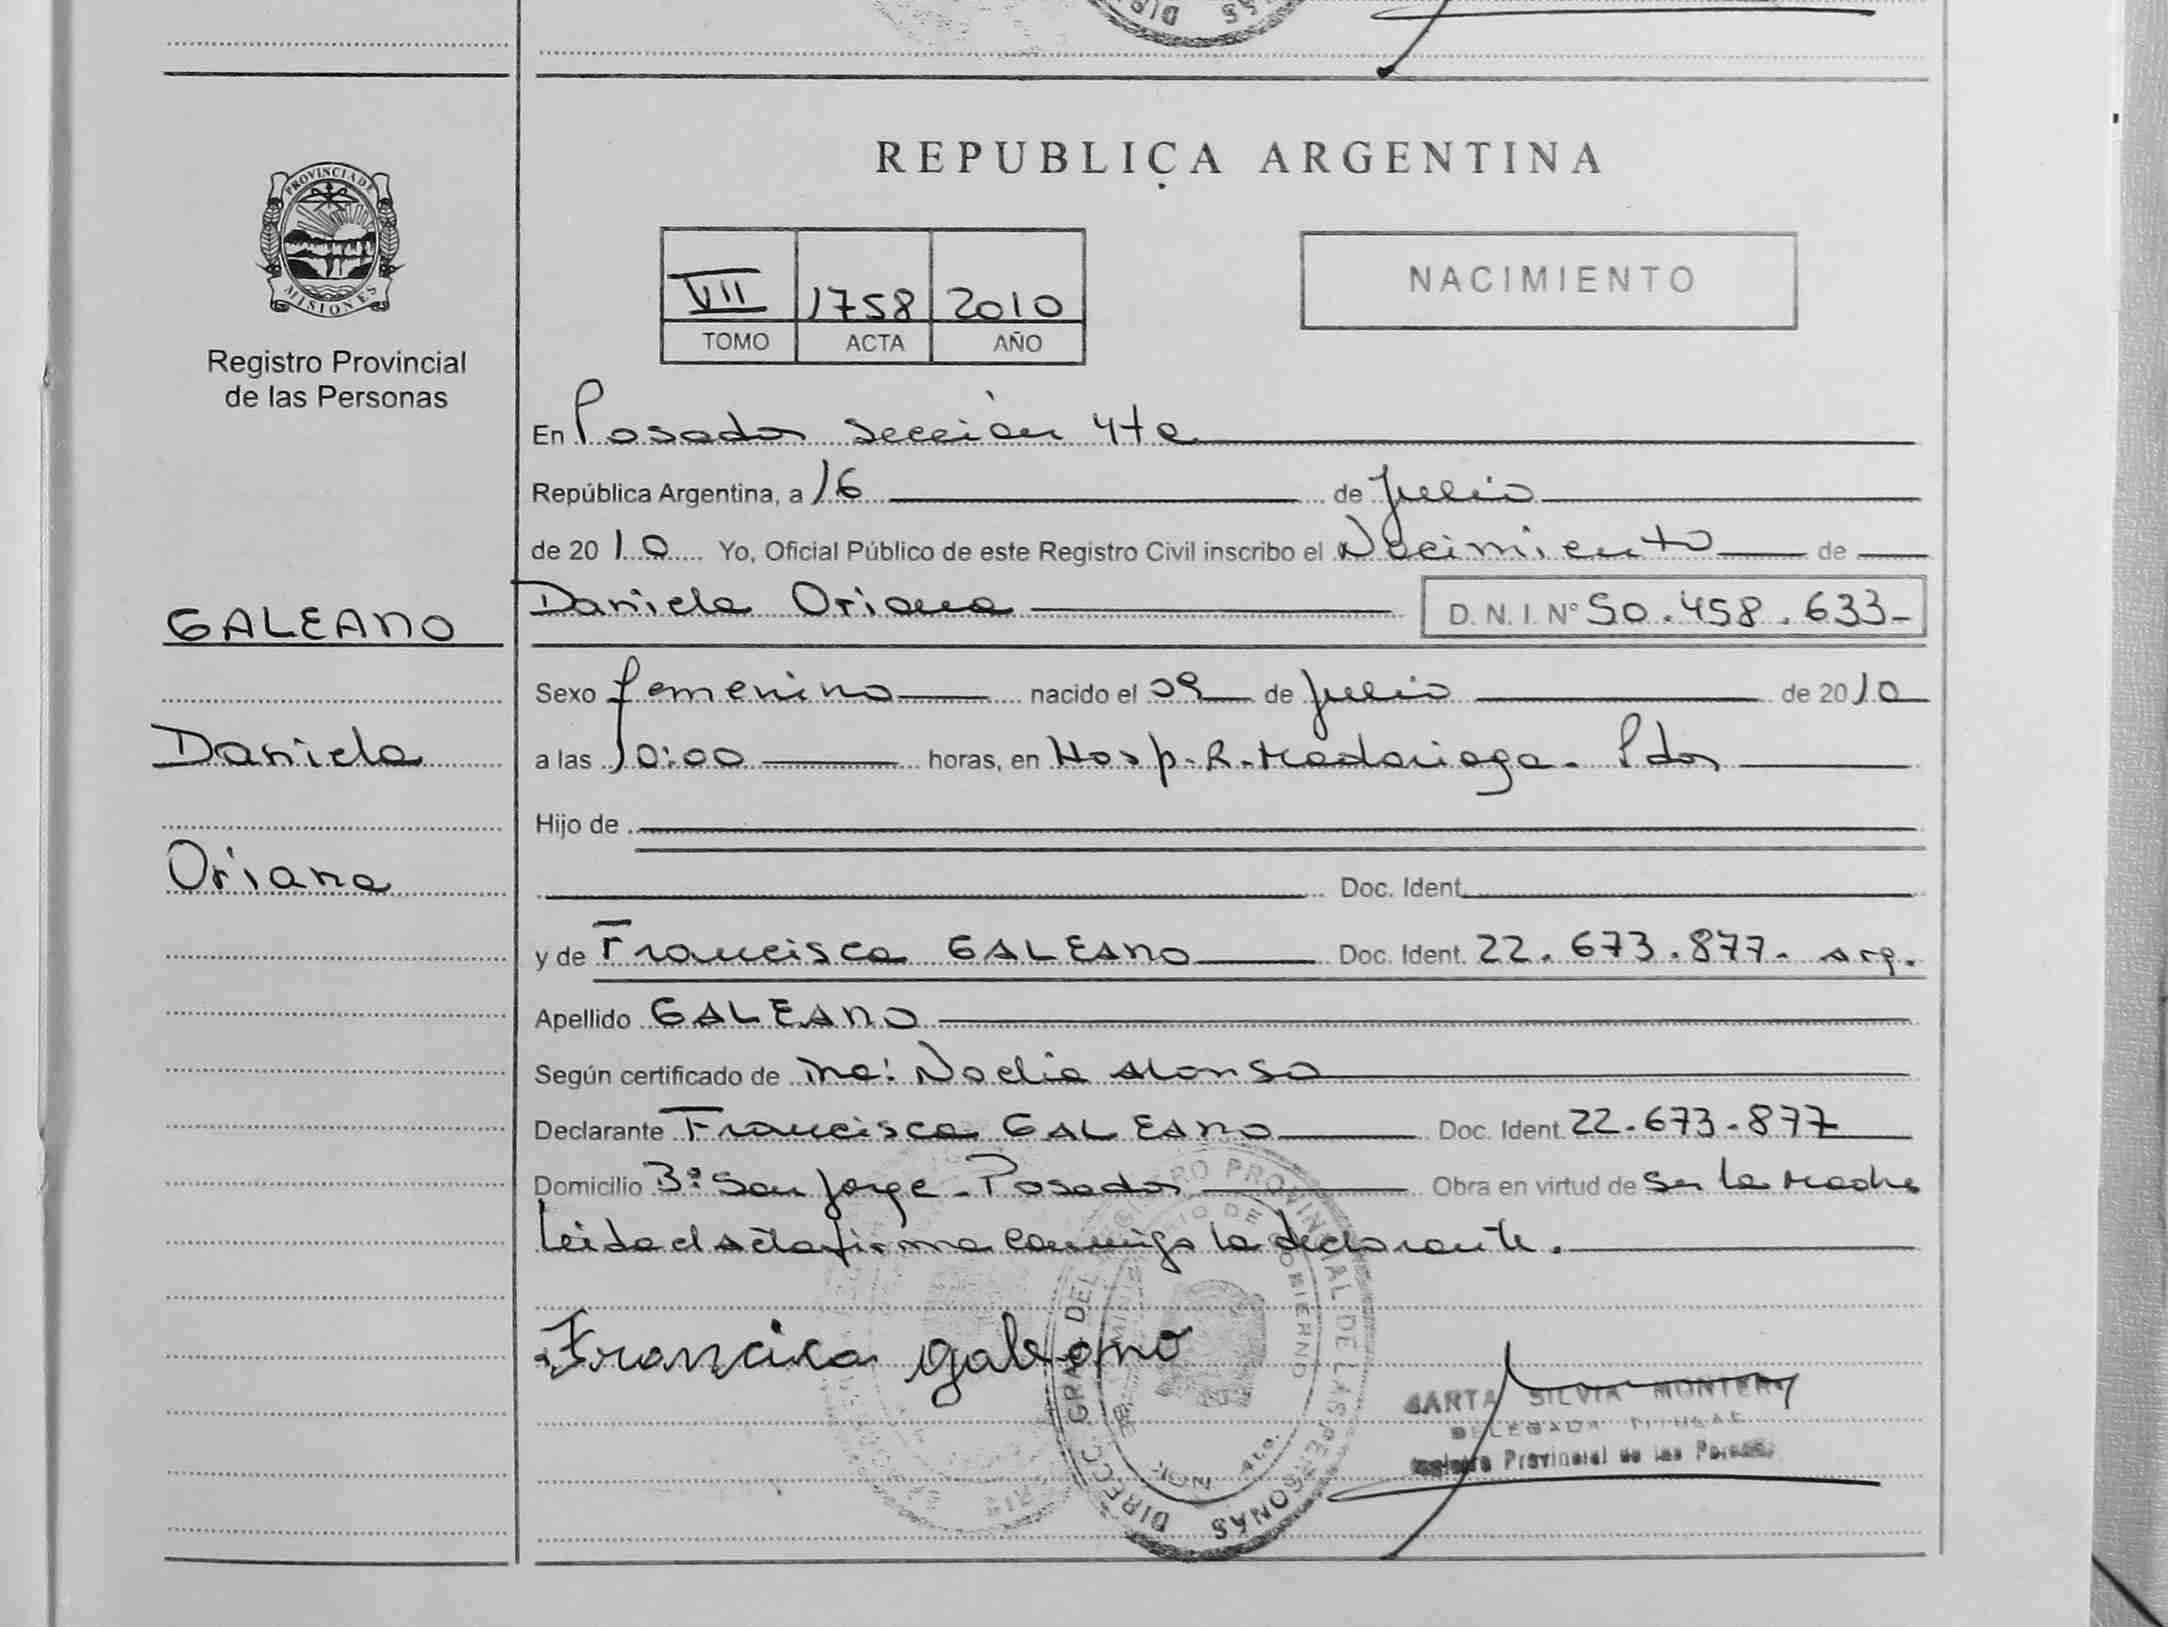 REPUBLICA ARGENTINA
PROVINCIA DE
MISIONES
Registro Provincial
de las Personas
VII 1758 2010
TOMO ACTA AÑO
NACIMIENTO
En Posadas sección 4ta
República Argentina, a 16 de Julio
de 2010 Yo, Oficial Público de este Registro Civil inscribo el Nacimiento de
Daniela Oriana D. N. I. Nº 50.458.633-
GALEANO
Daniela
Oriana
Sexo femenino nacido el 09 de Julio de 2010
a las 10:00 horas, en Hosp. R. Madariaga - Pdas
Hijo de
Doc. Ident.
y de Francisca GALEANO Doc. Ident. 22.673.877- Arg.
Apellido GALEANO
Según certificado de Noelia Alonso
Declarante Francisca GALEANO Doc. Ident. 22.673.877
Domicilio Bº San Jorge - Posadas Obra en virtud de Ser la Madre
Leida el Acta firma conmigo la declarante.
Francisca galeano
DIRECC. GRAL DEL REGISTRO PROVINCIAL DE LAS PERSONAS
MINISTERIO DE GOBIERNO
4ta.
SILVIA MONTERO
Provincial de las